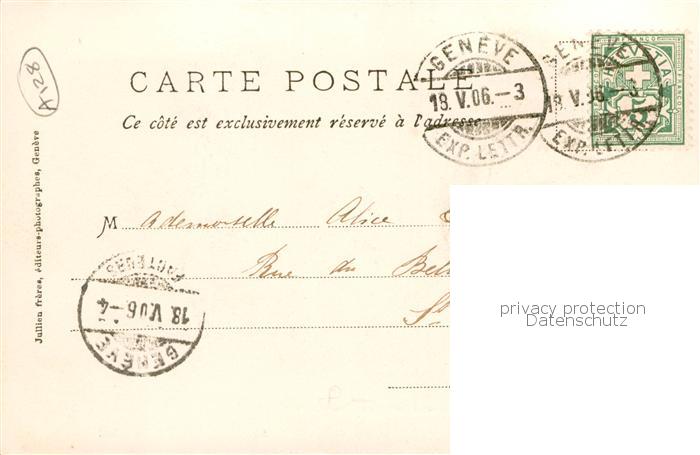 A128
GENÈVE
18.V.06.-3
EXP. LETTR.
GENÈVE
18.V.06.-3
EXP. LETTR.
FRANCO
HELVETIA
CARTE POSTALE
Ce côté est exclusivement réservé à l'adresse
Jullien frères, éditeurs-photographes, Genève
Mademoiselle Alice
Rue du
FACTEURS
18.V.06.-4
GENÈVE
privacy protection
Datenschutz